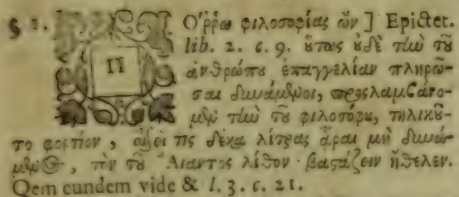 § 1. ΠΌῤῥω φιλοσοφίας ὢν ] Epictet.
lib. 2. c. 9. οὕτως οὐδὲ τὴν τοῦ
ἀνθρώπου ἐπαγγελίαν πληρῶ-
σαι δυνάμενοι, προσλαμβάνο-
μεν τὴν τοῦ φιλοσόφου, τηλικοῦ-
το φορτίον, οἷον εἴ τις δέκα λίτρας ἆραι μὴ δυνά-
μενος, τὸν τοῦ Αἴαντος λίθον βαστάζειν ἤθελεν.
Qem eundem vide & l. 3. c. 21.